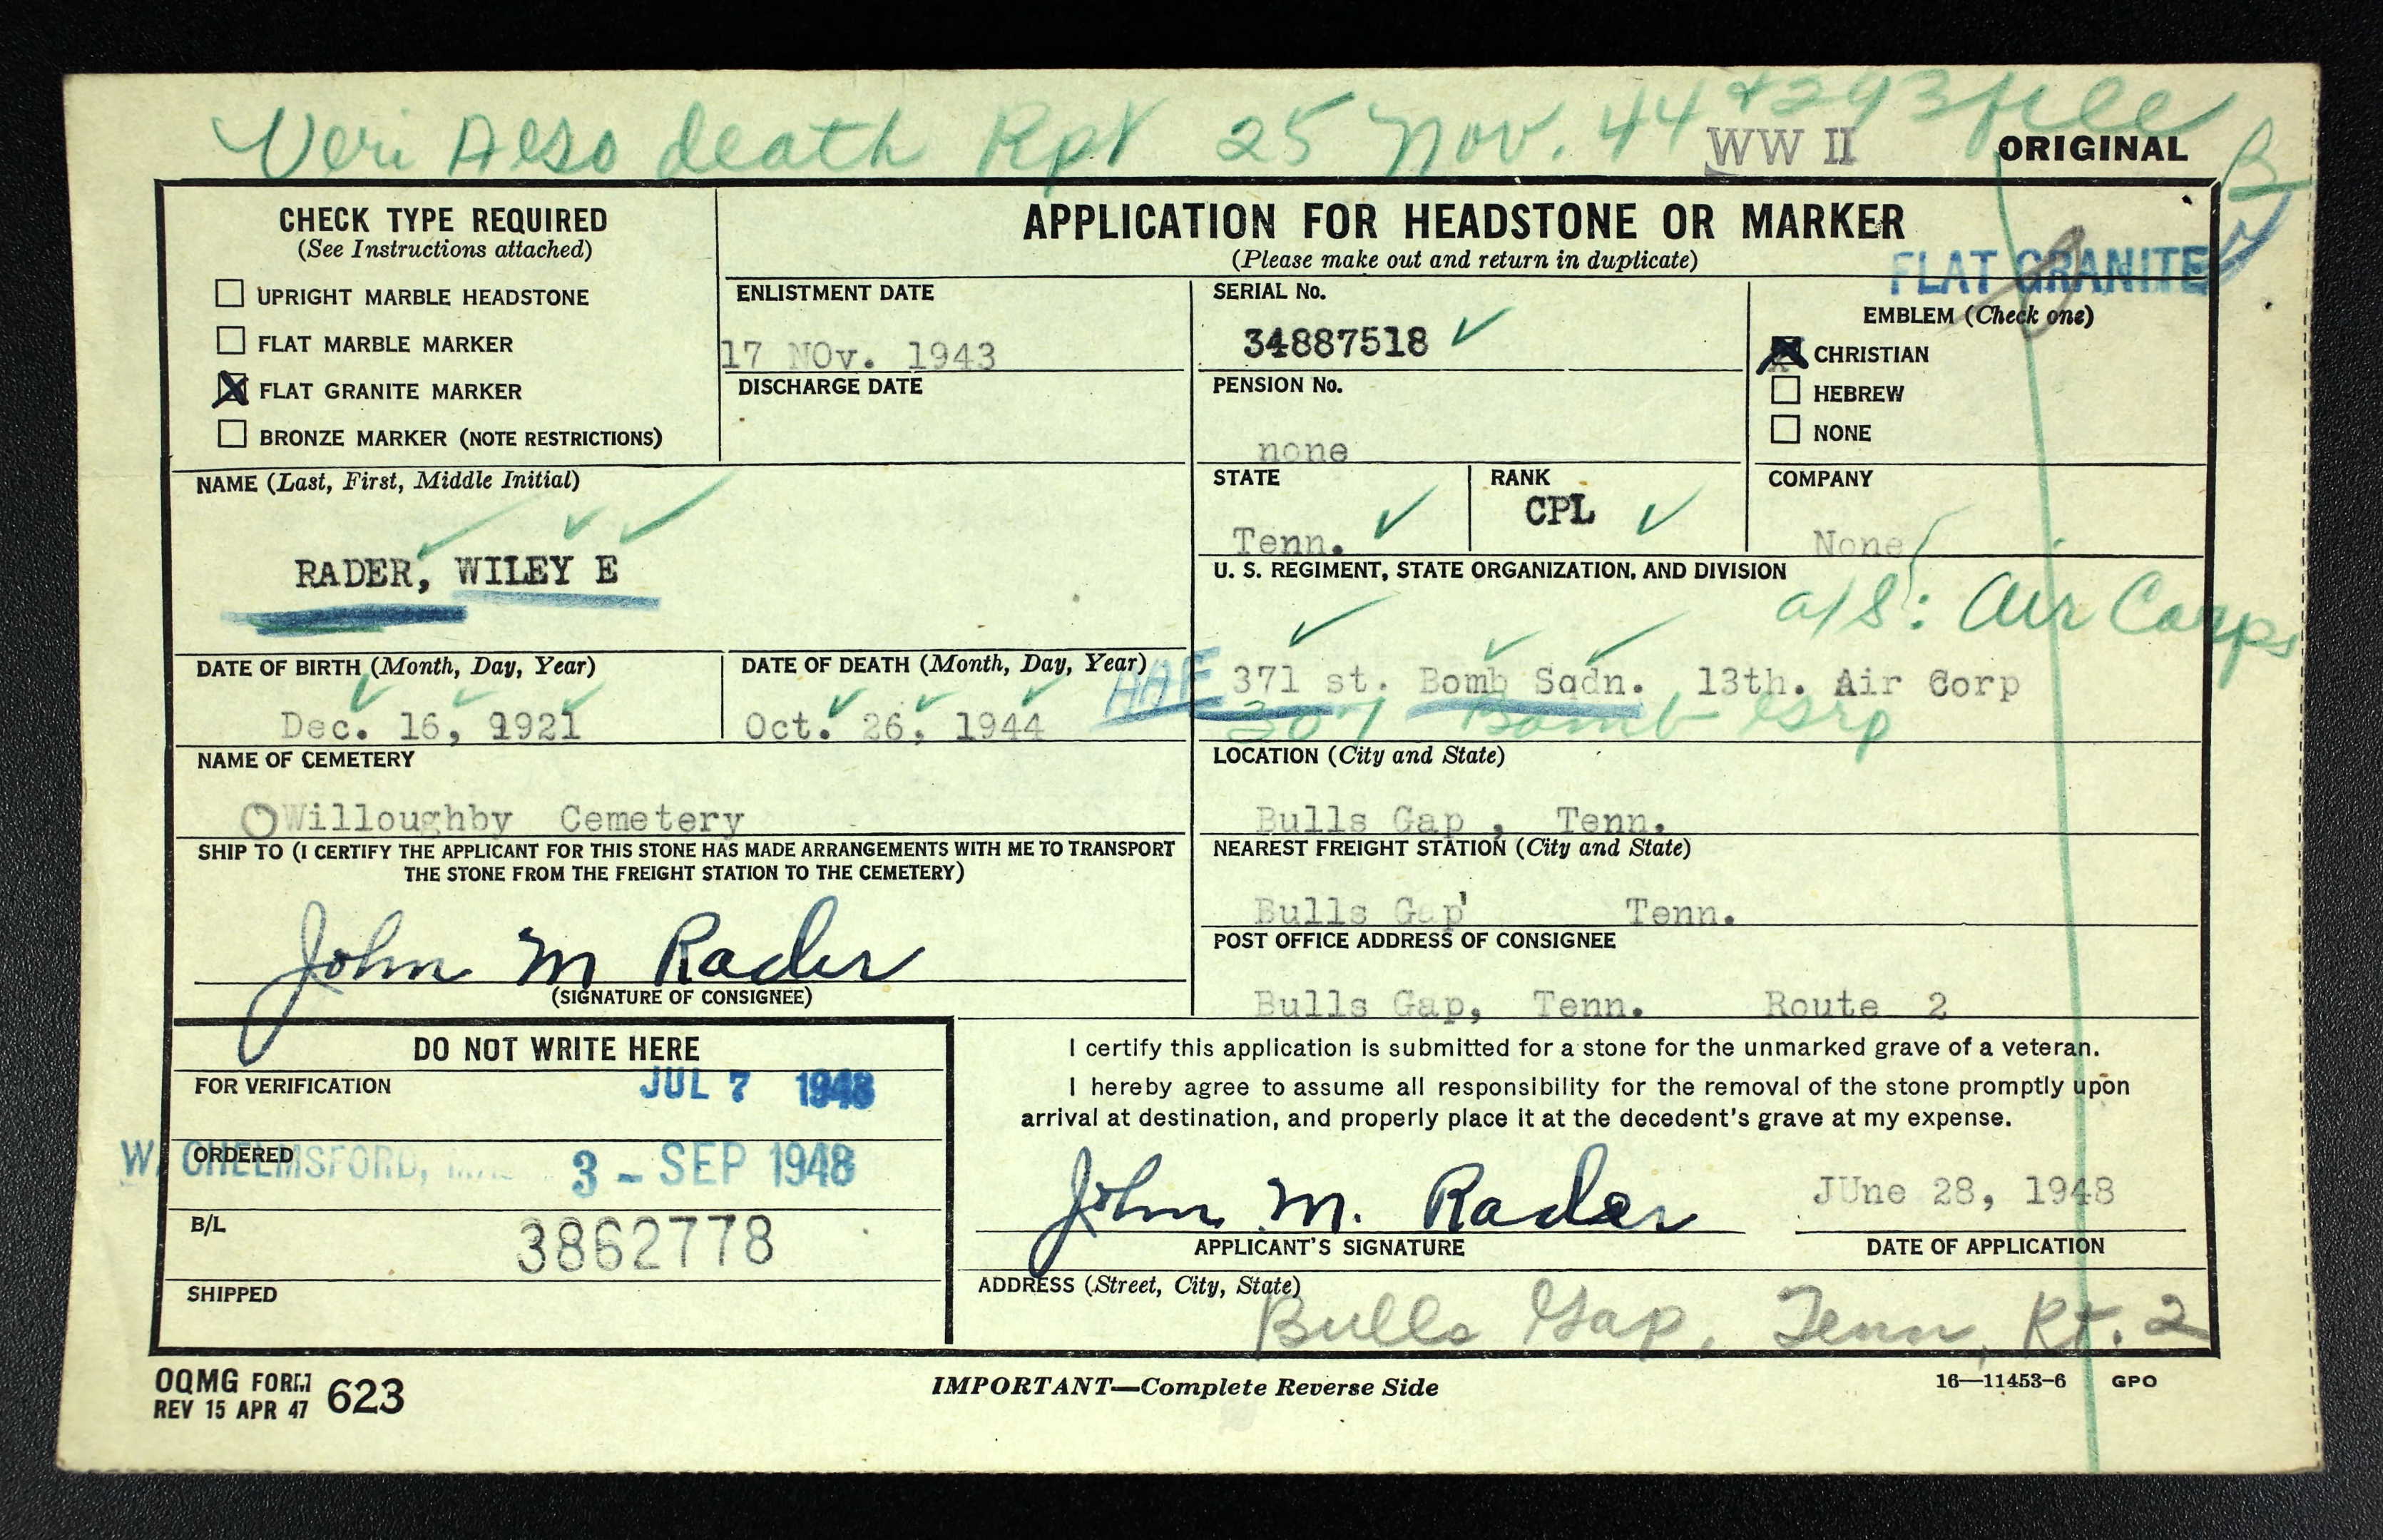 Veri Also death Rpt 25 Nov. 44 & 293 file
WW II
ORIGINAL
B
CHECK TYPE REQUIRED
(See Instructions attached)
UPRIGHT MARBLE HEADSTONE
FLAT MARBLE MARKER
X FLAT GRANITE MARKER
BRONZE MARKER (NOTE RESTRICTIONS)
APPLICATION FOR HEADSTONE OR MARKER
(Please make out and return in duplicate)
FLAT GRANITE
ENLISTMENT DATE
17 NOv. 1943
DISCHARGE DATE
SERIAL No.
34887518 ✓
PENSION No.
none
EMBLEM (Check one)
X CHRISTIAN
HEBREW
NONE
NAME (Last, First, Middle Initial)
RADER, WILEY E
STATE
Tenn. ✓
RANK
CPL ✓
COMPANY
None
U. S. REGIMENT, STATE ORGANIZATION, AND DIVISION
a/S: Air Corps
AAF 371 st. Bomb Sqdn. 13th. Air Corp
307 Bomb Grp
DATE OF BIRTH (Month, Day, Year)
Dec. 16, 1921
DATE OF DEATH (Month, Day, Year)
Oct. 26, 1944
NAME OF CEMETERY
Willoughby Cemetery
LOCATION (City and State)
Bulls Gap , Tenn.
SHIP TO (I CERTIFY THE APPLICANT FOR THIS STONE HAS MADE ARRANGEMENTS WITH ME TO TRANSPORT
THE STONE FROM THE FREIGHT STATION TO THE CEMETERY)
John M Rader
(SIGNATURE OF CONSIGNEE)
NEAREST FREIGHT STATION (City and State)
Bulls Gap' Tenn.
POST OFFICE ADDRESS OF CONSIGNEE
Bulls Gap, Tenn. Route 2
DO NOT WRITE HERE
FOR VERIFICATION
JUL 7 1948
ORDERED
W. CHELMSFORD, 3 - SEP 1948
B/L
3862778
SHIPPED
I certify this application is submitted for a stone for the unmarked grave of a veteran.
I hereby agree to assume all responsibility for the removal of the stone promptly upon
arrival at destination, and properly place it at the decedent's grave at my expense.
John M. Rader
APPLICANT'S SIGNATURE
JUne 28, 1948
DATE OF APPLICATION
ADDRESS (Street, City, State)
Bulls Gap, Tenn, Rt. 2
OQMG FORM 623
REV 15 APR 47
IMPORTANT—Complete Reverse Side
16—11453-6 GPO